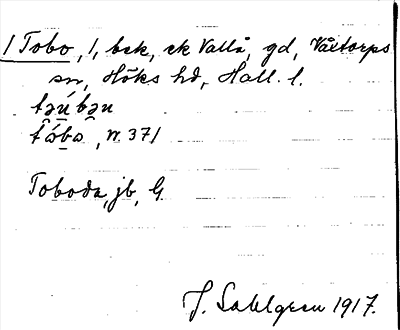 1 Tobo, l, bck, sk Vallå, gd, Våxtorps
sn, Höks hd, Hall. l.
təú̯bəu̯
tôbo, n. 371
Toboda, jb, G.
J. Sahlgren 1917.